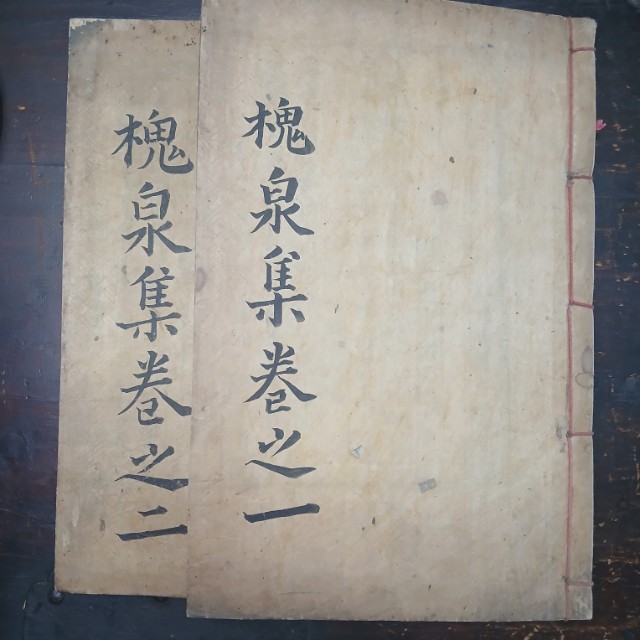 槐泉集卷之一
槐泉集卷之二